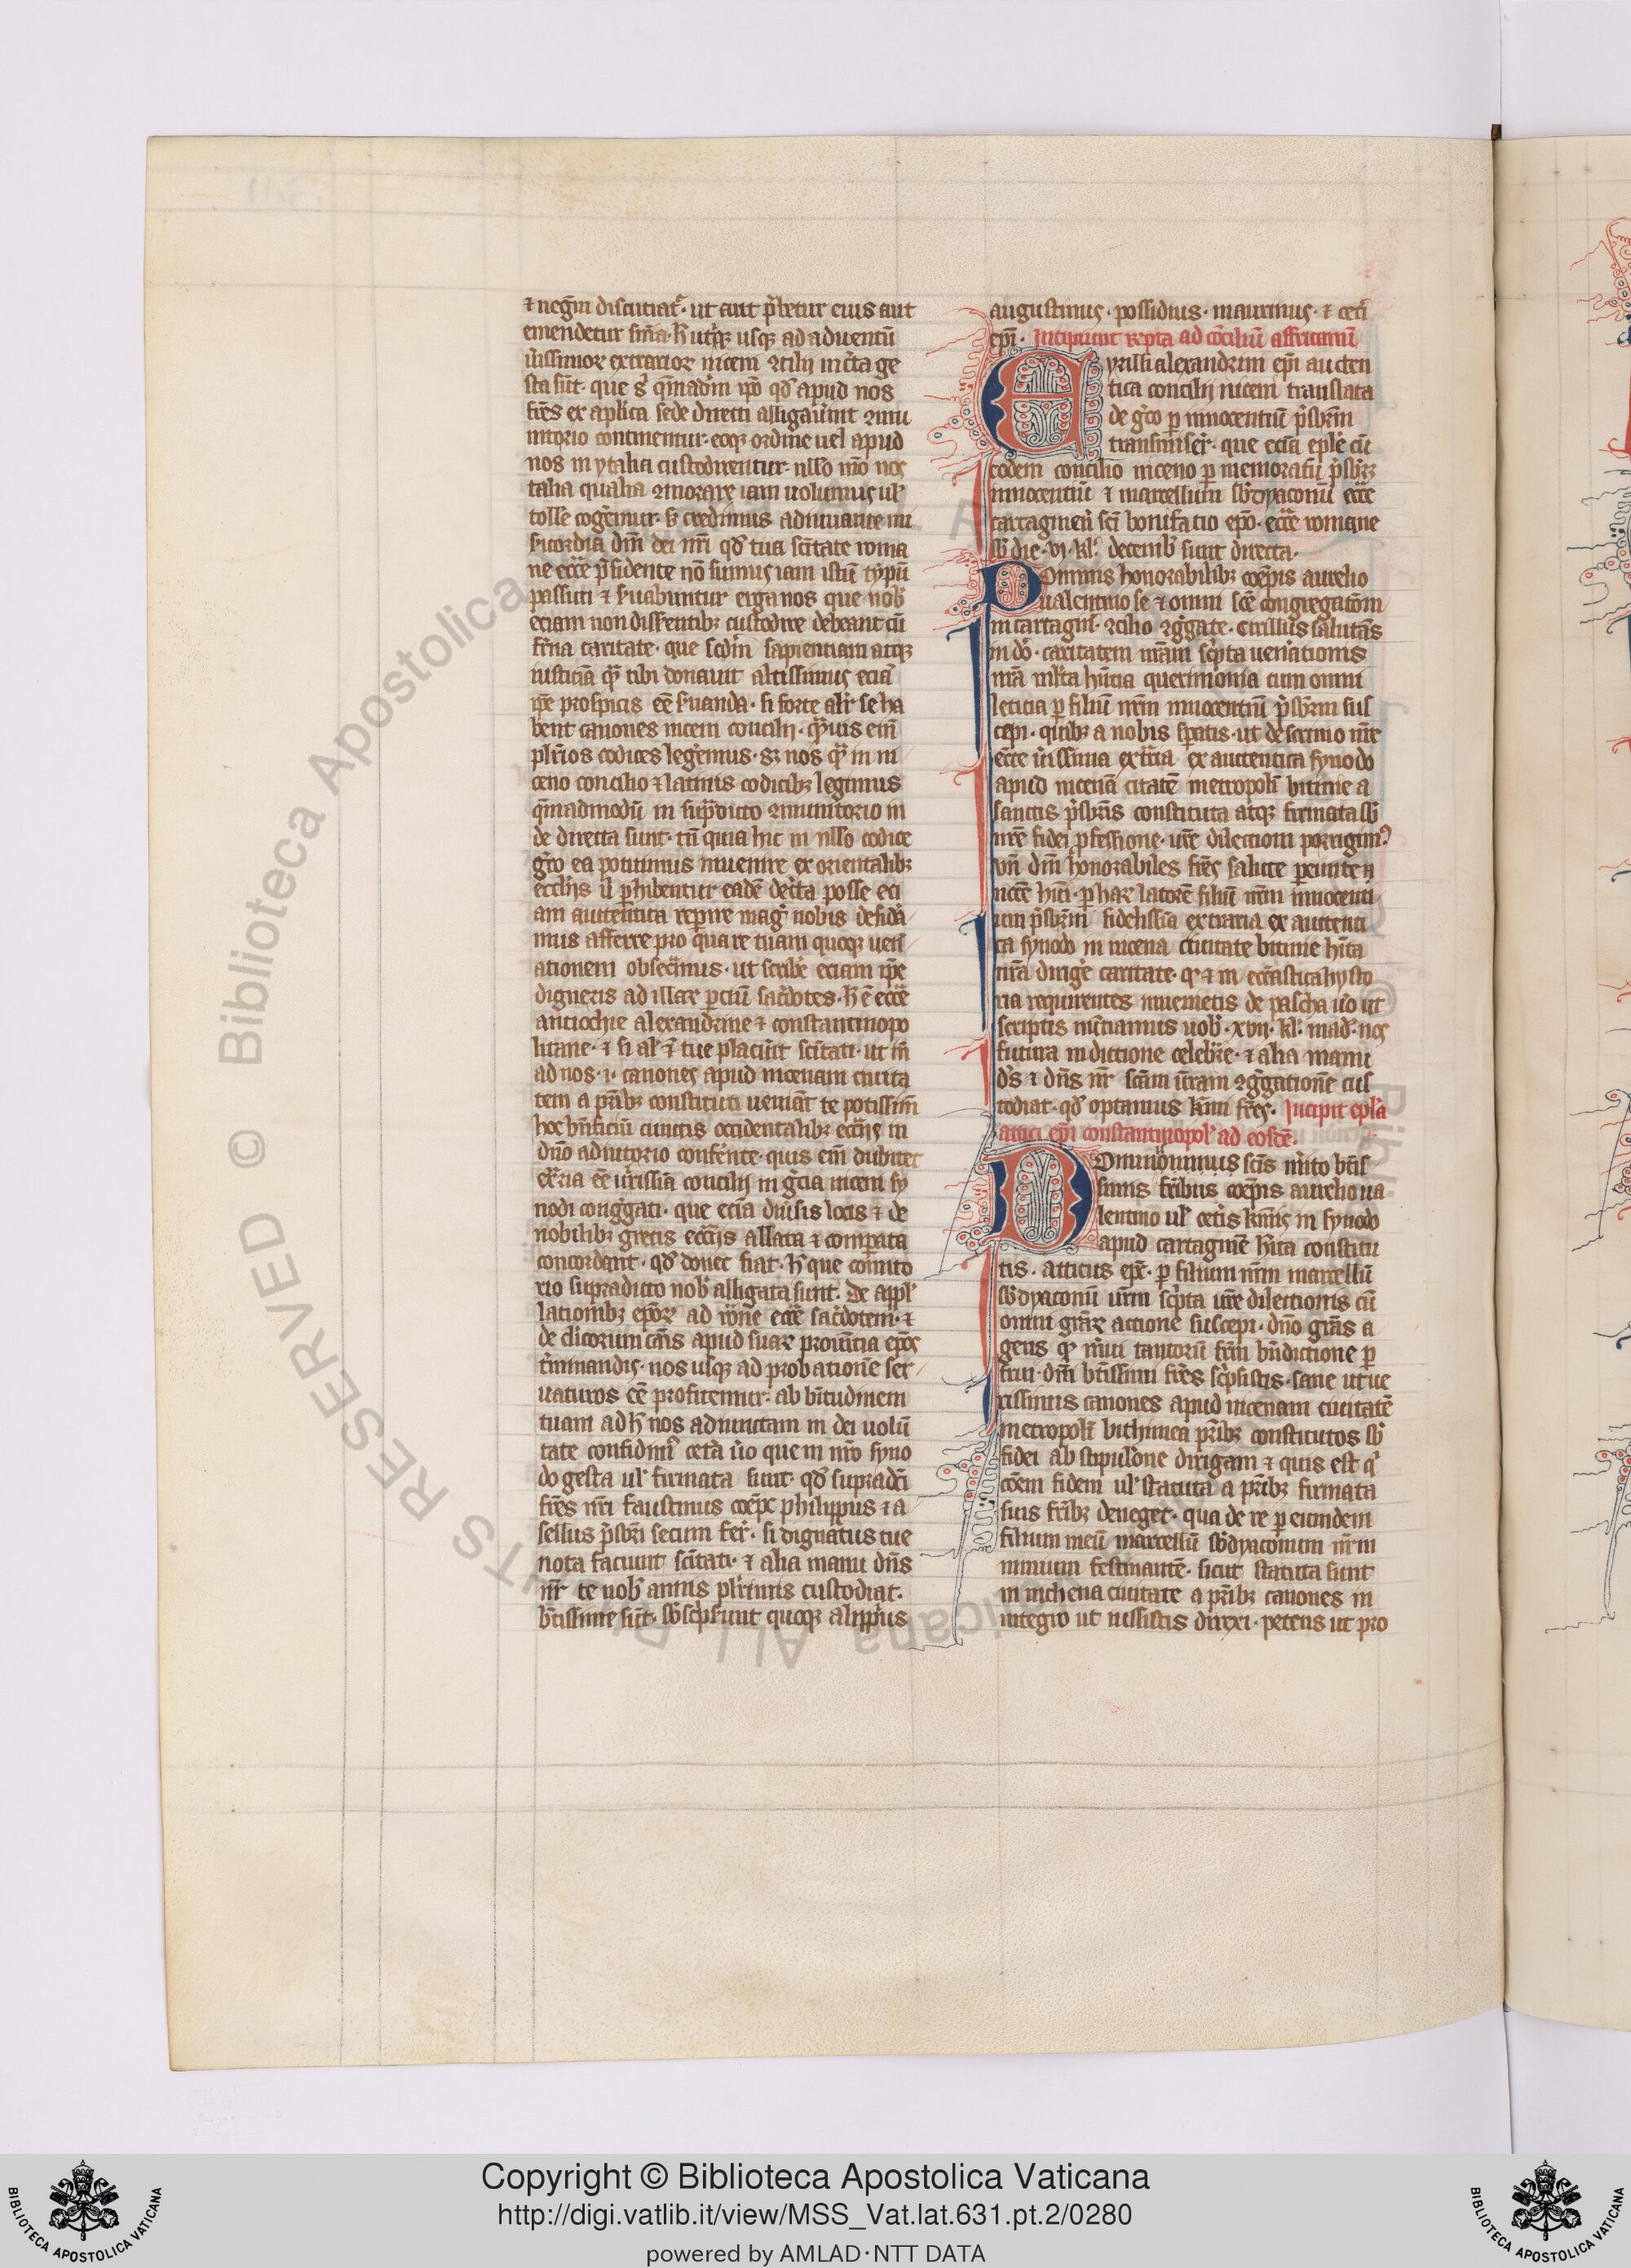 ⁊ negēm discutiatᷣ· ut aut ꝓbetur eius aut
emendetur sn̄ia· h̄ utiqꝫ usqꝫ ad aduentū
u̓issimoꝝ exemplarioꝝ niceni ꝯcilij
sta sūt· que si q̄madm̄ ip̄o qd̓ apud nos
fr̄es ex aplica sede directi alligauerunt ꝯmu
nitorio continentur· eoqꝫ ordine uel apud
nos in ytalia custodirentur· nllo mō nos
talia qualia ꝯmorare iam uolumus ul̓
tolle cog̓emur· sꝫ credimus adiuuante mi
sericordia dn̄i dei nr̄i qd̓ tua sc̄itate roma
ne ecc̄e p̄sidente nō sumus iam istū typū
passuri ⁊ s̓uabuntur erga nos que nob̓
eciam non diss̓entibꝫ custodire debeant cū
fr̄na caritate· que sc̄dm̄ sapientiam atqꝫ
iusticiā quā tibi donauit altissimus eciā
ip̄e prospicis eē s̓uanda· si forte alit̓ se ha
bent canones niceni concilij· q̄uis eni̅
plr̄ios codices leg̓emus· sꝫ nos q̄ in ni
ceno concilio ⁊ latinis codicibꝫ legimus
q̄madmodū in sup̄dicto ꝯmunitorio in
de directa sunt· tn̄ quia hic in nllo codice
gr̄co ea potuimus inuenire ex orientalibꝫ
eccl̄ijs u̓ ꝑhibentur eadē dec̄ta posse eci
am autentica rep̓ire mag̓ nobis desid̓a
mus afferre pro qua re tuam quoqꝫ uen̓
ationem obsec̄mus· ut scrib̓e eciam ip̄e
digneris ad illaꝝ ꝑciū sac̓dotes· h̄ ē ecc̄e
antiochie alexandrine ⁊ constantinopo
litane· ⁊ si al̓ ē tue placu̓it sc̄itati· ut in̄
ad nos· i· canones apud nicenam ciuita
tem a p̄ribꝫ constituti ueniāt te potissim̄
hoc bn̄ficiū cunctis occidentalibꝫ ecc̄ijs in
dn̄o adiutorio conferente· quis eni̅ dubitet
ex̄ria eē u̓issima concilij in gr̄cia niceni sy
nodi cong̓gati· que eciā diu̓sis locis ⁊ de
nobilibꝫ grecis ecc̄ijs allata ⁊ comꝑata
concordant· qd̓ donec fiat· h̄ que comito
rio supradicto nob̓ alligata sunt· De appl̓
lationibꝫ ep̄oꝝ ad rōne ecc̄e sac̓dotem· ⁊
de clicorum cāis apud suaꝝ prouīcia ep̄os
t̓minandis· nos usqꝫ ad probationē ser
uaturos eē profitemur· ab bt̄itudinem
tuam ad h̄ nos adiuuctam in dei uolū
tate confidimꝰ cet̓a u̓o que in nr̄o syno
do gesta ul̓ firmata sunt· qd̓ supradc̄i
fr̄es nr̄i faustinus coep̄c philippus ⁊ a
sellus p̄sbr̄i secum fer̄· si dignatus tue
nota faciunt sc̄itati· ⁊ alia manu dn̄s
nr̄ te nob̓ annis plurimis custodiat·
bt̄issime fr̄· sb̓sc̓pserunt quoqꝫ alippius
augustinus· possidius· maurinus· ⁊ cet̓i
ep̄i· Incipiunt rescpta ad cōcilium affricanū
Cyrilli alexandrini ep̄i aucten
tica concilij niceni translata
de gr̄co ꝑ innocentiū p̄sbr̄m
transmiser̄· que eciā epl̄e cū
eodem concilio niceno ꝑ memoratū p̄sbr̄ꝝ
innocentiū ⁊ marcellum sb̓dyaconū ecc̄e
cartaginen̄ sc̄i bonifatio ep̄o· ecc̄e romane
sb̓ die· vi· kl̓· decemb̓ sunt directa·
Dominis honorabilibꝫ coep̄is aurelio
ualentino se ⁊ omni sc̄e congregatōni
in cartagin̄· ꝯcilio ꝯg̓gate· Cirillus salutās
in dō· caritatem nr̄am sc̓pta uen̓ationis
mā mlta hn̄cia querimonia cum omni
leticia ꝑ filiū nr̄m innocentiū p̄sbr̄m sus
cepi· quibꝫ a nobis spatis· ut de scrinio nr̄e
ecc̄e u̓issima ex̄ria ex auctentica synodo
apud nicenā ciuitatē metropolī bitinie a
sanctis p̄sbr̄is constituta atqꝫ firmata sb̓
nr̄e fidei ꝓfessione· ur̄e dilectioni porrigimꝰ
vn̄ dn̄i honorabiles fr̄es salute p̄eunte
nicc̄e hn̄ti· ꝑ haꝝ latorē filiū nr̄m innocenti
um p̄sbr̄m fidelissīa ex̄emplaria ex autenti
ca synodo in nicena ciuitate bitinie hīta
nr̄a dirig̓e caritate· q ⁊ in eccl̄iastica hysto
ria requirentes inuenietis de pascha u̓o ut
scriptis nūtiamus uob̓· xvii· kl̓· mad̓· nos
futura indictione celebr̄e· ⁊ alia manu
d̓s ⁊ dn̄s nr̄ sc̄am ur̄am ꝯg̓gationē cus
todiat· qd̓ optamus kr̄mi fr̄es· Incipit epl̄a
attici ep̄i constantinopol̓ ad eosdē·
Domino unnus sc̄is m̓ito bt̄is
simis fr̄ibus coep̄is aurelio ua
lentino ul̓ cet̓is kr̄mis in synodo
apud cartaginē hīta constitu
tis· atticus ep̄c· ꝑ filium nr̄m marcellū
sb̓dyaconū ur̄m sc̓pta ur̄e dilectionis cū
omni gr̄aꝝ actione suscepi· dn̄o gr̄as a
gens q m̓ui tantorū fr̄m bn̄dictione ꝑ
frui· dn̄i bt̄issimi fr̄es sc̓psistis· sane ut ue
rissimus canones apud nicenam ciuitatē
metropolī bithiniea p̄ribꝫ constitutos sb̓
fidei ab stipulōne dirigam ⁊ quis est q̓
cōem fidem ul̓ statuta a p̄ribꝫ firmata
suis fr̄ibꝫ deneget· qua de re ꝑ eumdem
filium meū marcellū sb̓dyaconum nr̄m
nimium festinantē· sicut statuta sunt
in nichena ciuitate a p̄ribꝫ canones in
integro ut iussistis direxi· petens ut pro
Copyright © Biblioteca Apostolica Vaticana
http://digi.vatlib.it/view/MSS_Vat.lat.631.pt.2/0280
powered by AMLAD·NTT DATA